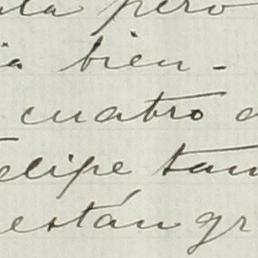 pero
bien -
cuatro
elipe tam
están gr